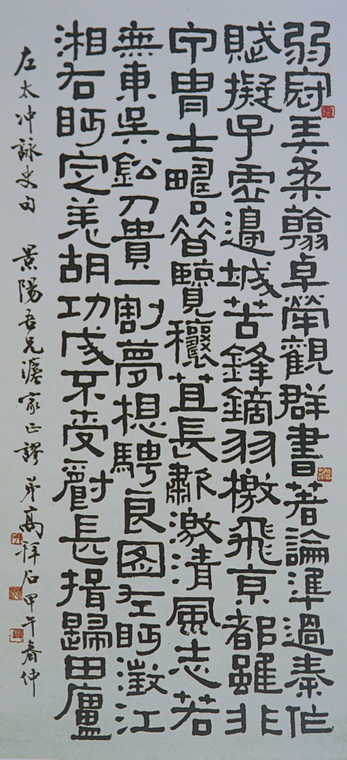 弱冠弄柔翰卓犖觀群書著論準過秦作
賦擬子虛邊城苦鋒鏑羽檄飛京都雖非
甲冑士疇昔覽穰苴長嘯激清風志若
無東吳鉛刀貴一割夢想騁良圖左眄澂江
湘右眄定羌胡功成不受爵長揖歸田廬
左太冲詠史句 景陽吾兄灋家正謬 弟高拜石甲午春仲